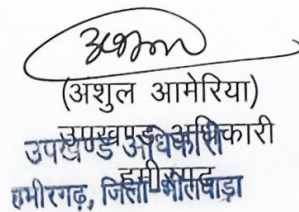 (अशुल आमेरिया)
उपखण्ड अधिकारी
हमीरगढ़
उपखण्ड अधिकारी
हमीरगढ़, जिला-भीलवाड़ा